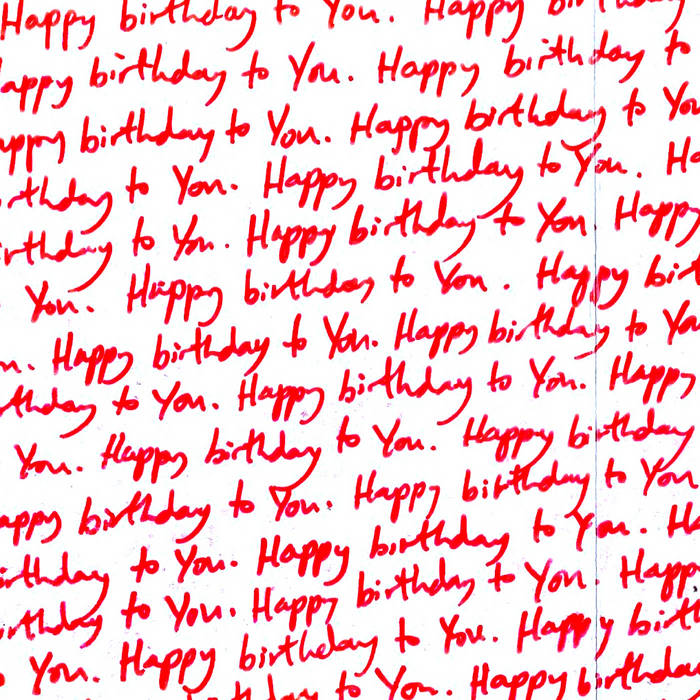 Happy birthday to You. Happy birthday
happy birthday to You. Happy birthday to
happy birthday to You. Happy birthday to You
birthday to You. Happy birthday to You. Ha
birthday to You. Happy birthday to You Happy
You. Happy birthday to You. Happy birt
n. Happy birthday to You. Happy birthday to You
rthday to You. Happy birthday to You. Happy
You. Happy birthday to You. Happy birthday
appy birthday to You. Happy birthday to You
irthday to You. Happy birthday to You. Ha
irthday to You. Happy birthday to You. Happy
to You. Happy birthday to You. Happy birth
birthday to You. Happy birthday